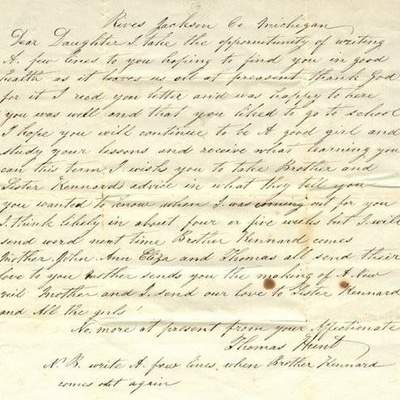 Rives Jackson Co Michigan
Dear Daughter I take the opportunity of writing
A few lines to you hoping to find you in good
health as it leaves us at preasent thank God
for it I recd you letter and was happy to here
you was well and that you liked to go to school
I hope you will continue to be A good girl and
study your lessons and receive what learning you
can this term I wish you to take Brother and
Sister Kennards advice in what they tell you
you wanted to know when I was coming out for you
I think likely in about four or five weeks but I will
send word next time Brother Kennard comes
Mother, John, Ann Eliza and Thomas all send their
love to you Mother sends you the making of A New
vail Mother and I send our love to Sister Kennard
and All the girls
No more at present from your Affectionate
Thomas Hunt
N.B. write A few lines when Brother Kennard
comes out again